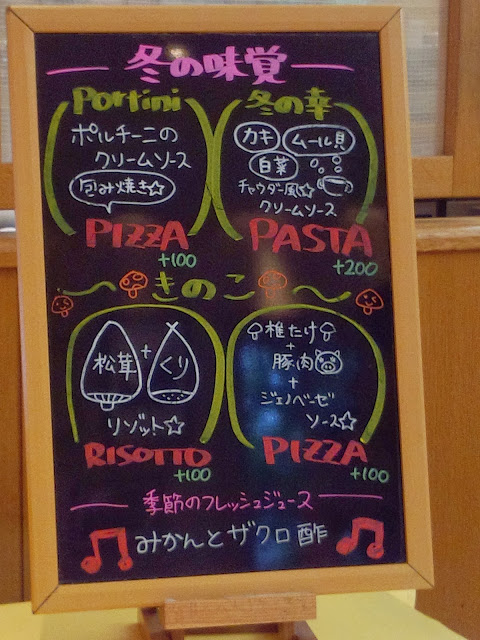 冬の味覚
Portini
ポルチーニの
クリームソース
包み焼き☆
PIZZA
+100
冬の幸
カキ ムール貝
白菜
チャウダー風☆
クリームソース
PASTA
+200
きのこ
松茸 + くり
リゾット☆
RISOTTO
+100
椎たけ
+
豚肉
+
ジェノベーゼ
ソース☆
PIZZA
+100
季節のフレッシュジュース
みかんとザクロ酢